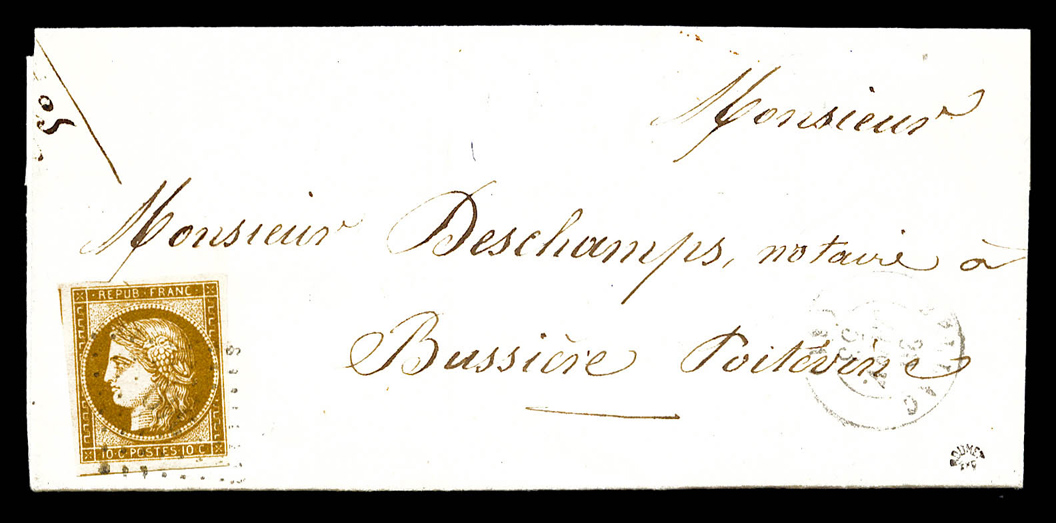 Monsieur
Monsieur Deschamps, notaire à
Bussière Poitevine
REPUB·FRANC·
10·C·POSTES·10·C